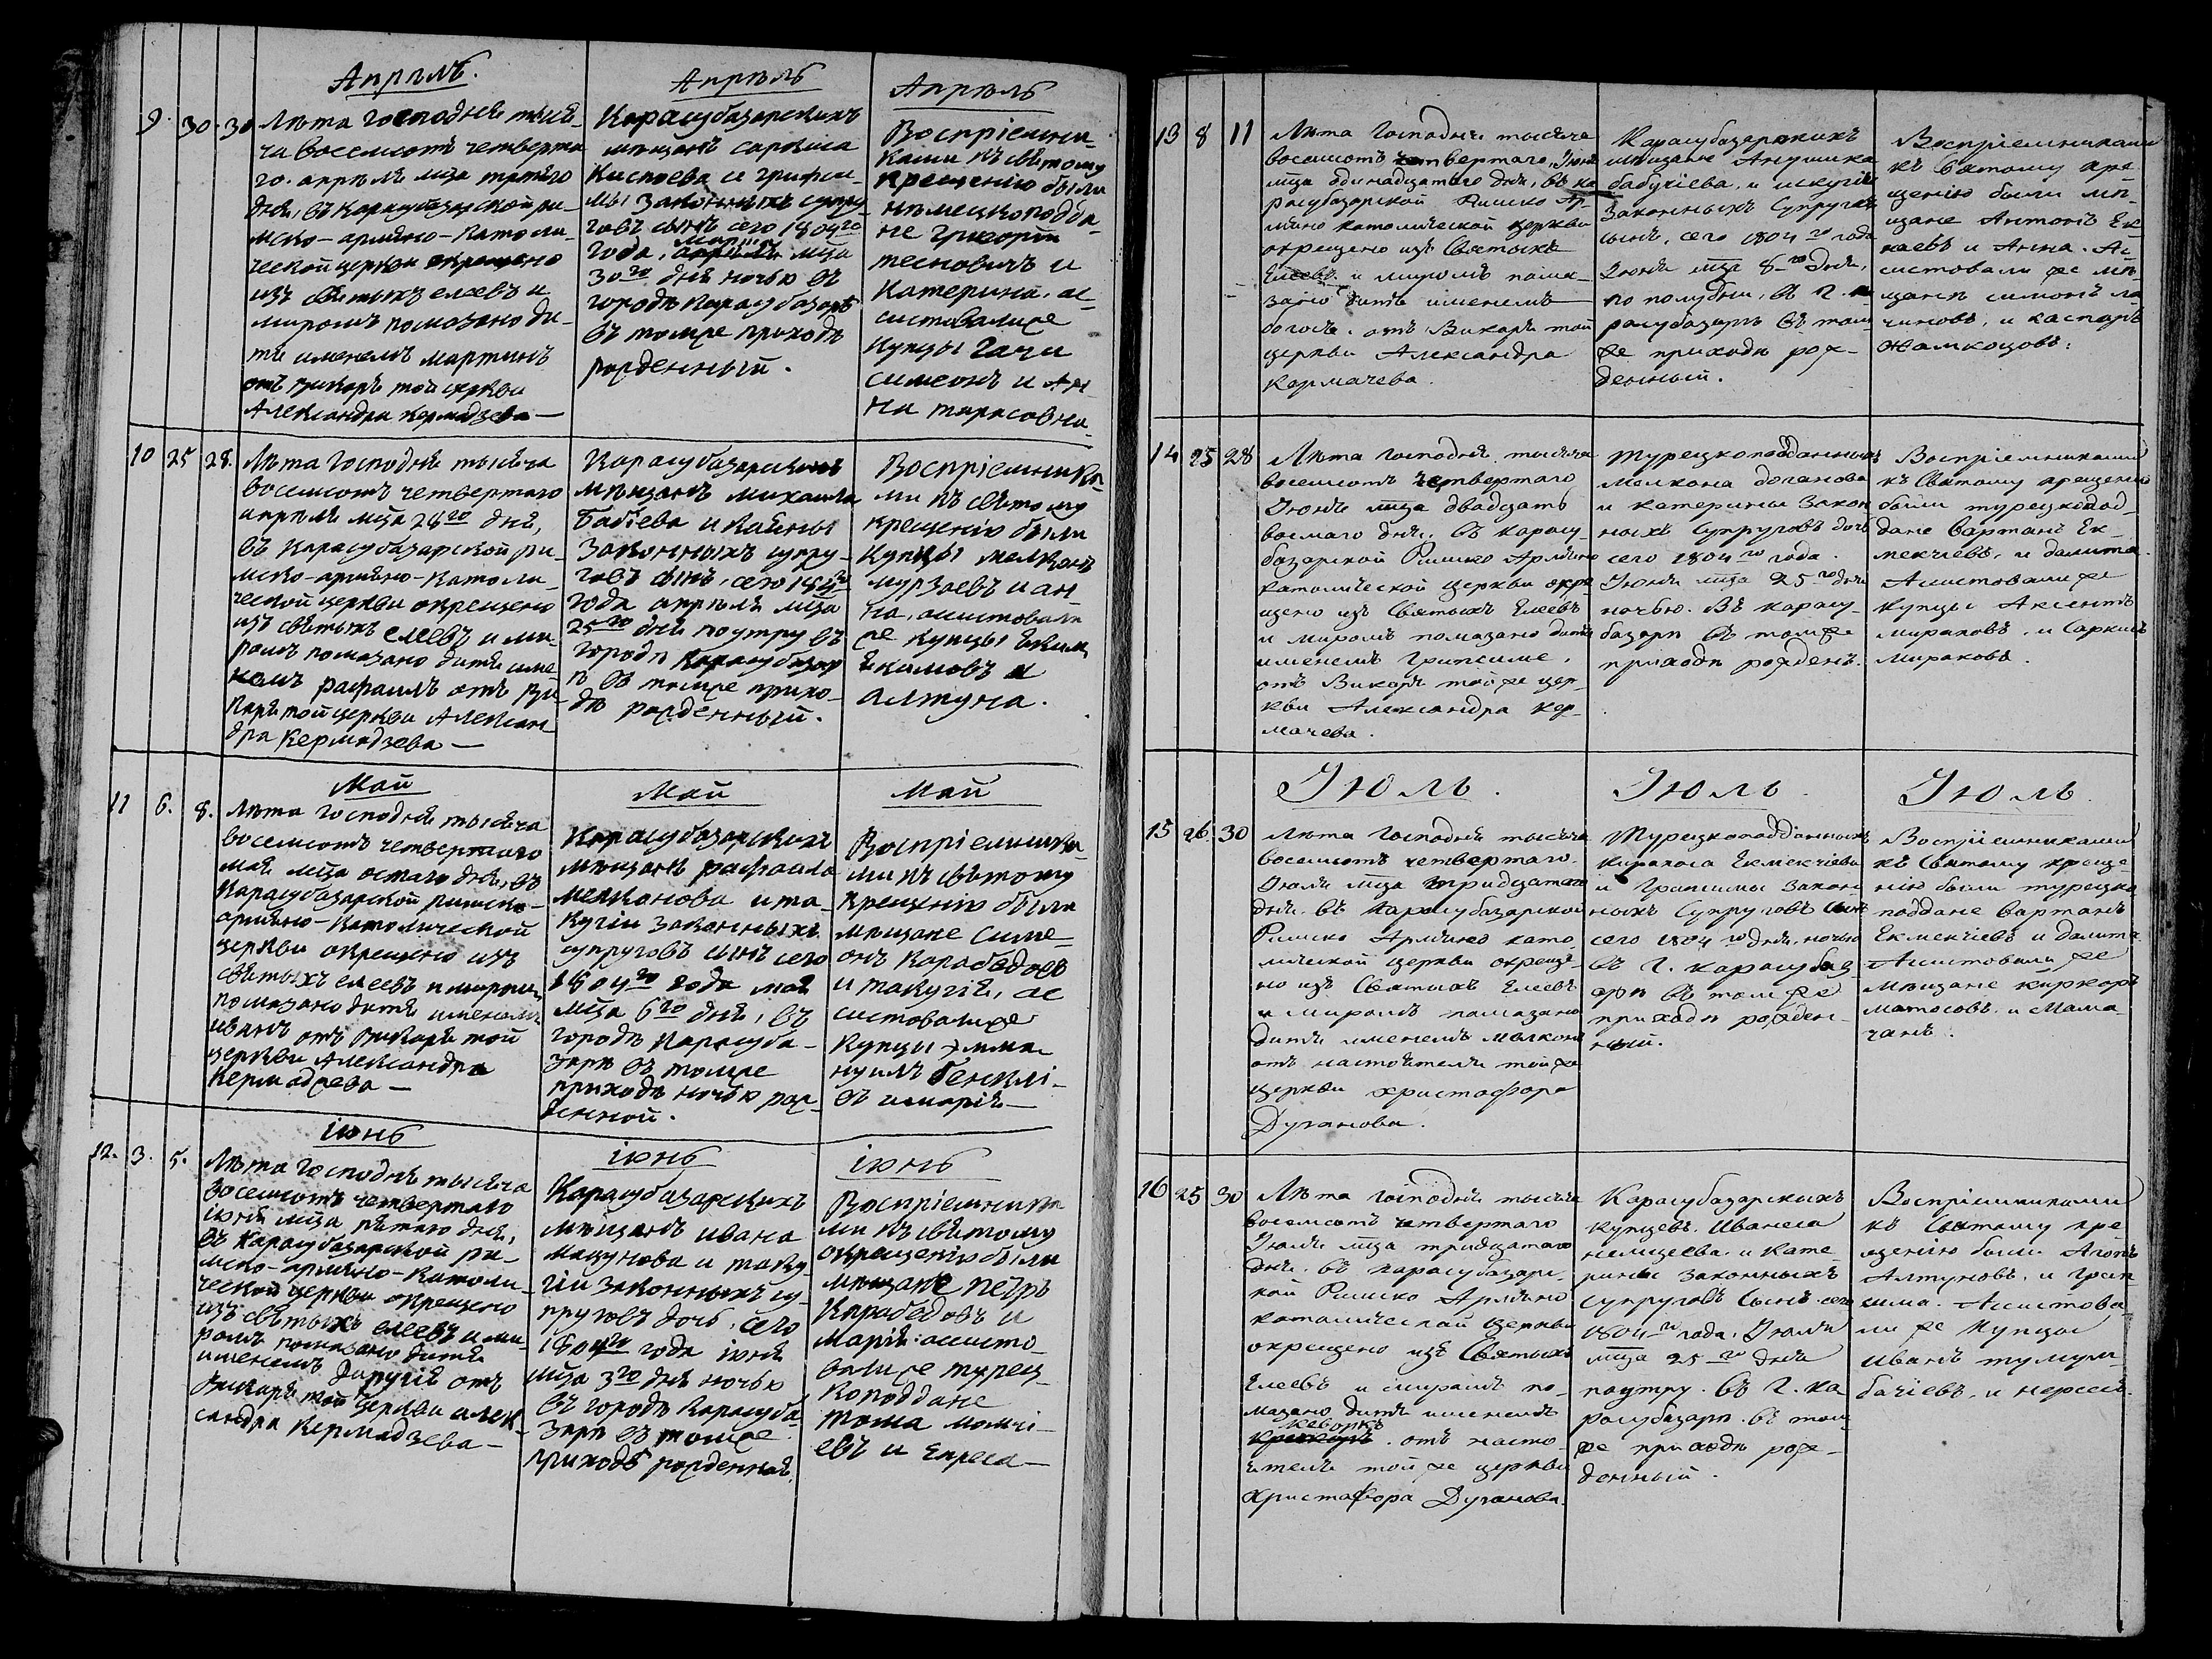 Апрѣль.
Апрѣль
Апрѣль
9. 30. 30
Лѣта Господня тыся-
ча восемсотъ четверта
го. апрѣля мца третяго
дня, въ Карасубазарской ри-
мско-армяно-католи-
ческой церкви окрещено
изъ святыхъ елеевъ и
миромъ помазано ди-
тя именемъ мартинъ
отъ викаря той церкви
Александра Кермадзева—
Карасубазарскихъ
мѣщанъ саркиса
и грипси-
мы законныхъ супру-
говъ сынъ сего 1804го
года, марта мца
30го дня ночью въ
городѣ Карасубазарѣ
въ томже приходѣ
рожденный.
Воспріемни-
ками къ святому
крещенію были
нѣмецкоподда-
не григорій
и
Катерина. ас-
систовалиже
купцы гачи
симеонъ и Ан-
на тарасовна.
10 25 28.
Лѣта Господня тысяча
восемсотъ четвертаго
апрѣля мца 28го дня,
въ Карасубазарской ри-
мско-армяно-католи-
ческой церкви окрещено
изъ святыхъ елеевъ и ми-
ромъ помазано дитя име-
немъ рафаилъ отъ ви-
каря той церкви Алексан
дра Кермадзева—
Карасубазарскихъ
мѣщанъ михаила
Бабіева и
законныхъ супру-
говъ сынъ, сего 1804го
года апрѣля мца
25го дня поутру въ
городѣ Карасубазар
ѣ въ томже прихо-
дѣ рожденный.
Воспріемника-
ми къ святому
крещенію были
купцы мелконъ
мурзаевъ и ан
на, асистовали
же купцы Еким
Екимовъ и
алтуна.
Май
Май
Май
11 6. 8.
Лѣта Господня тысяча
восемсотъ четвертаго
мая мца осмаго дня, въ
Карасубазарской римско-
армяно-католической
церкви окрещено изъ
святыхъ елеевъ и миромъ
помазано дитя именемъ
иванъ отъ викаря той
церкви Александра
Кермадзева—
Карасубазарскихъ
мѣщанъ рафаила
мелконова и та-
кугіи законныхъ
супруговъ сынъ сего
1804го года мая
мца 6го дня, въ
городѣ Карасуба-
зарѣ въ томже
приходѣ ночью рож-
денной.
Воспріемника-
ми къ святому
крещенію были
мѣщане симе-
онъ Карабедовъ
и такугія, ас
систовалиже
купцы эмма-
нуилъ
и марія—
іюнь
іюнь
іюнь
12. 3. 5.
Лѣта Господня тысяча
восемсотъ четвертаго
іюня мца пятаго дня,
въ Карасубазарской ри-
мско-армяно-католи-
ческой церкви окрещено
изъ святыхъ елеевъ и ми-
ромъ помазано дитя
именемъ отъ
викаря той церкви алек-
сандра Кермадзева—
Карасубазарскихъ
мѣщанъ ивана
и таку-
гіи законныхъ су-
пруговъ дочь, сего
1804го года іюня
мца 3го дня ночью
въ городѣ Карасуба-
зарѣ въ томже
приходѣ рожденная.
Воспріемника
ми къ святому
окрещенію были
мѣщане петръ
Карабедовъ и
Марія: ассисто-
валиже турец-
коподдане
тома
евъ и Екреса—
13 8 11
Лѣта Господня тысяча
восемсотъ четвертаго, Іюня
мца одинадцатаго дня, въ ка
расубазарской Римско Ар-
мяно католической церкви
окрещено изъ Святыхъ
Елеевъ и миромъ пома-
зано дитя именемъ
богосъ. отъ Викаря той
церкви Александра
Кермачева.
Карасубазарскихъ
мѣщанъ
бабугіева, и искугіи
Законныхъ Супруговъ
сынъ, сего 1804го года
Іюня мца 8го дня,
по полудни, въ г. ка
расубазарѣ въ том
же приходѣ рож-
денный.
Воспріемниками
къ Святому кре
щенію были мѣ-
щане Антонъ Ек
каевъ и Анна. Ас-
систовали же мѣ
щане симонъ
и каспаръ
14 25 28
Лѣта Господня тысяча
восемсотъ четвертаго
Іюня мца двадцать
восмаго дня, въ карасу-
базарской Римско Армяно
католической церкви окре
щено изъ Святыхъ Елеевъ
и миромъ помазано дитя
именемъ Грипсиме,
отъ Викаря той же цер-
кви Александра Кер-
мачева.
Турецкоподданныхъ
мелкона доганова
и катерины закон
ныхъ Супруговъ дочь
сего 1804го года.
Іюня мца 25го дня
ночью. Въ карасу-
базарѣ въ томже
приходѣ рожденъ.
Воспріемниками
къ Святому крещенію
были турецкопод-
дане вартанъ Ек-
мекчіевъ, и далита.
Асистовали же
купцы Аксентъ
мираковъ, и Саркисъ
мираковъ.
Іюль.
Іюль.
Іюль.
15 26 30
Лѣта Господня тысяча
восемсотъ четвертаго.
Іюля мца тридцатаго
дня. въ Карасубазарской
Римско Армяно като-
лической церкви окреще-
но изъ Святыхъ Елеевъ
и миромъ помазано
дитя именемъ мелконъ
отъ настоятеля той же
церкви христофора
Дуганова.
Турецкоподданныхъ
киракоса Екмекчіева
и Грипсимы закон
ныхъ Супруговъ сынъ
сего 1804го дня, ночью
въ г. карасубаз
арѣ въ томъ же
приходѣ рожден-
ный.
Воспріемниками
къ Святому креще-
нію были турецко
поддане вартанъ
Екмекчіевъ и далита.
Асистовали же
мѣщане киркоръ
матосовъ. и Мама
чанъ.
16 25 30
Лѣта Господня тысяча
восемсотъ четвертаго
Іюля мца тридцатаго
дня. въ карасубазарс-
кой Римско Армяно
католической церкви
окрещено изъ Святыхъ
Елеевъ и миромъ по-
мазано дитя именемъ
кеворкъ
киркоръ. отъ насто-
ятеля той же церкви
Христофора Дуганова.
Карасубазарскихъ
купцевъ. Иванеса
и Кате
рины законныхъ
Супруговъ Сынъ. сего
1804го года, Іюля
мца 25го дня
поутру. въ г. ка
расубазарѣ. въ том
же приходѣ рож-
денный.
Воспріемниками
къ Святому кре
щенію были Агопъ
Алтуновъ, и Грип
сима. Асистова-
ли же купцы
иванъ
и нерсесъ.